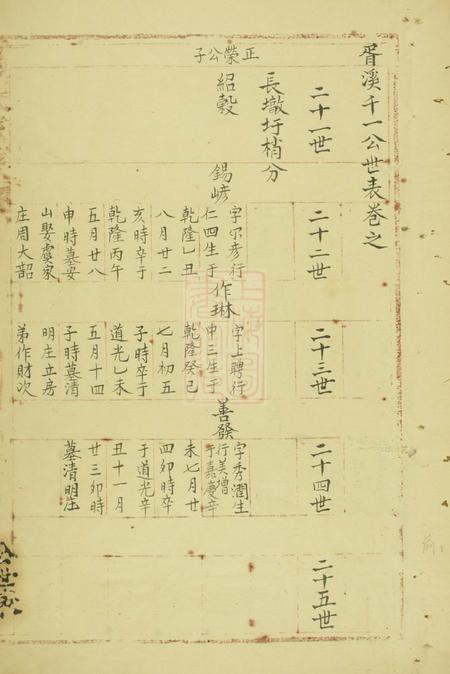 胥溪千一公世表卷之
二十一世
二十二世
二十三世
二十四世
二十五世
長墩圩梢分
正榮公子
紹穀
錫嵃
字尔彦行
仁四生于
乾隆乙丑
八月廿二
亥時卒于
乾隆丙午
五月廿八
申時墓安
山娶虞家
庄周大韶
作琳
字上聘行
申三生于
乾隆癸巳
七月初五
子時卒于
道光乙未
五月十四
子時墓清
明庄立房
弟作財次
善發
字秀潤生
行美增
于嘉慶辛
未七月廿
四卯時卒
于道光辛
丑十一月
廿三卯時
墓清明庄